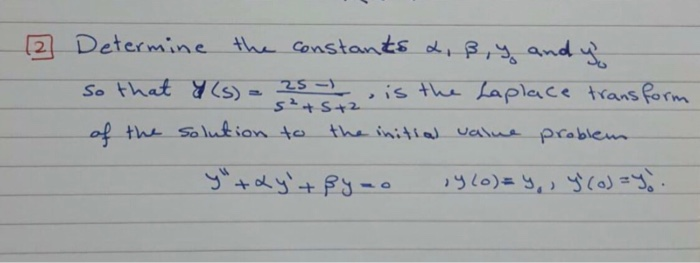 [2] Determine the constants α, β, y₀ and y₀'
so that Y(s) = (2s-1)/(s²+s+2), is the Laplace transform
of the solution to the initial value problem
y'' + αy' + βy = 0 , y(0) = y₀, y'(0) = y₀'.